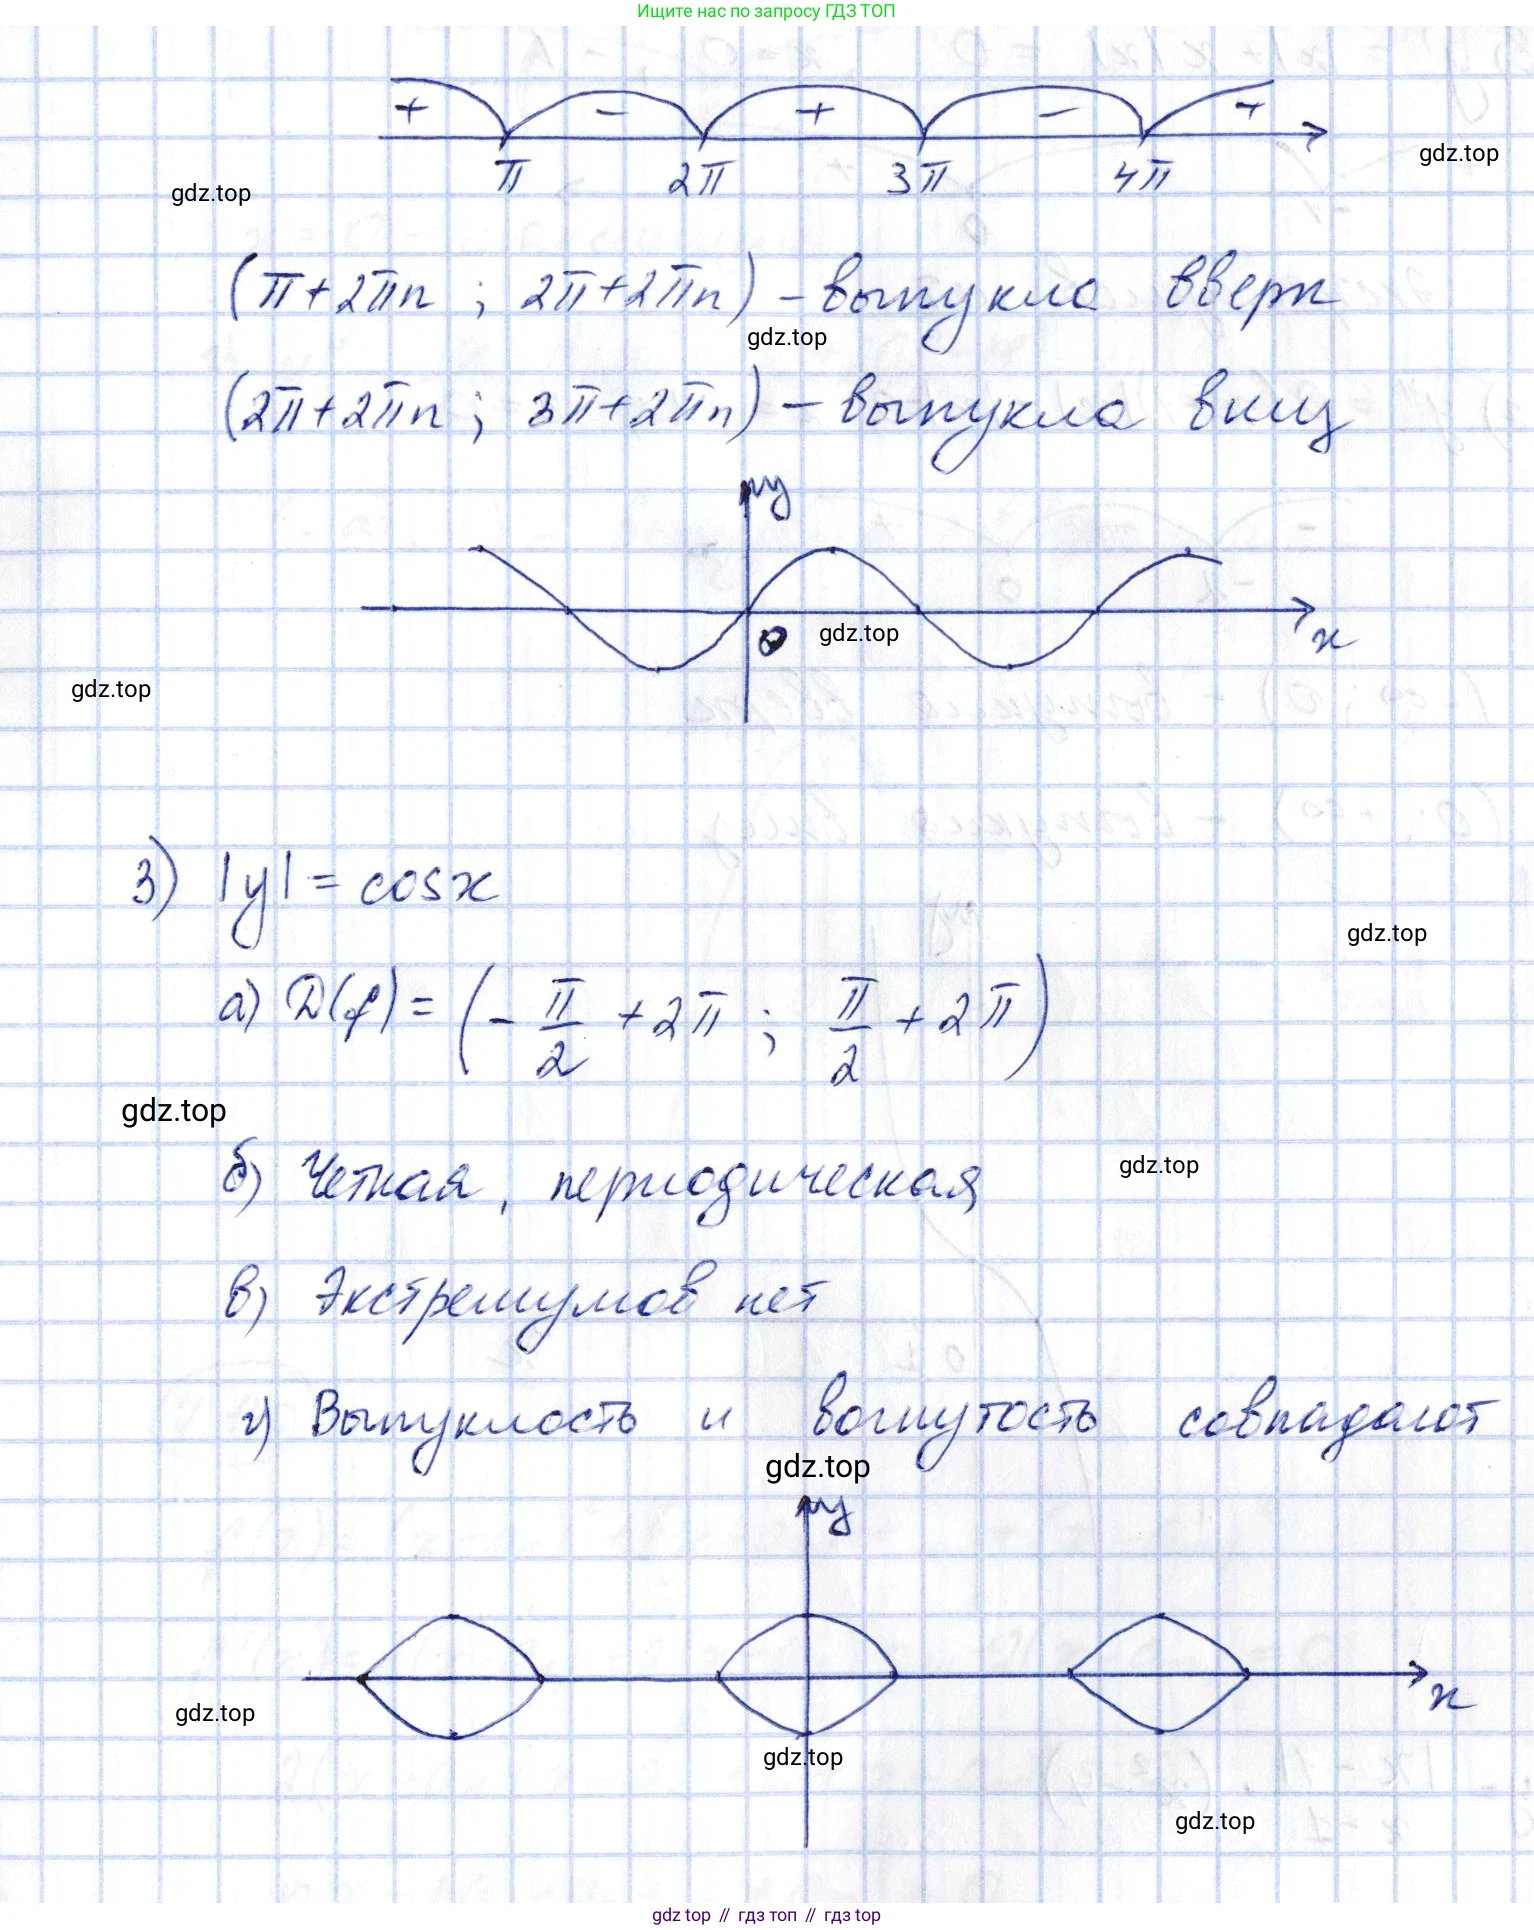 Ищите нас по запросу ГДЗ ТОП
+ − + − +
π 2π 3π 4π
gdz.top
gdz.top
(π+2πn ; 2π+2πn) − выпукла вверх
gdz.top
(2π+2πn ; 3π+2πn) − выпукла вниз
y
0
gdz.top
x
gdz.top
3) |y| = cosx
gdz.top
а) D(f) = (-π/2 + 2π ; π/2 + 2π)
gdz.top
б) Четная, периодическая
gdz.top
в) Экстремумов нет
г) Выпуклость и вогнутость совпадают
gdz.top
y
x
gdz.top
gdz.top
gdz.top
gdz top // гдз топ // гдз top